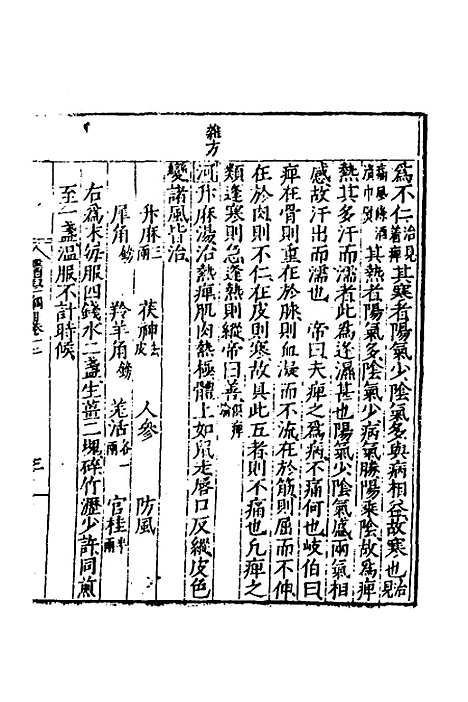 為不仁治見著痹其寒者陽氣少陰氣多與病相益故寒也治見
其熱者陽氣多陰氣少病氣勝陽乘陰故為痹
熱其多汗而濡者此為逢濕甚也陽氣少陰氣盛兩氣相
感故汗出而濡也 帝曰夫痹之為病不痛何也岐伯曰
痹在骨則重在於脉則血凝而不流在於筋則屈而不伸
在於肉則不仁在皮則寒故具此五者則不痛也凡痹之
類逢寒則急逢熱則縱帝曰善俱痹論
雜方
河升麻湯治熱痹肌肉熱極體上如鼠走唇口反縱皮色
變諸風皆治
升麻三兩 茯神去皮 人參 防風
犀角鎊 羚羊角鎊 羌活各一兩 官桂半兩
右為末每服四錢水二盞生薑二塊碎竹瀝少許同煎
至一盞溫服不計時候